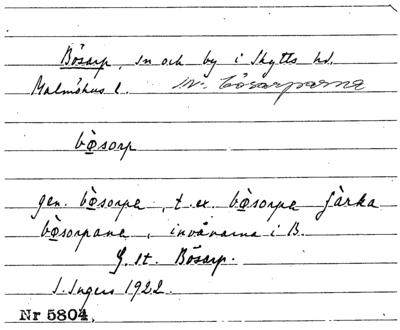 Bösarp, sn och by i Skytts hd.
Malmöhus l. inv. bösarparna
bø̀sorp
gen. bø̀sorpa, t. ex. bø̀sorpa ɟàrka
bø̀sorpana, invånarna i B.
G. st. Bösarp.
I. Ingers 1922.
Nr 5804.